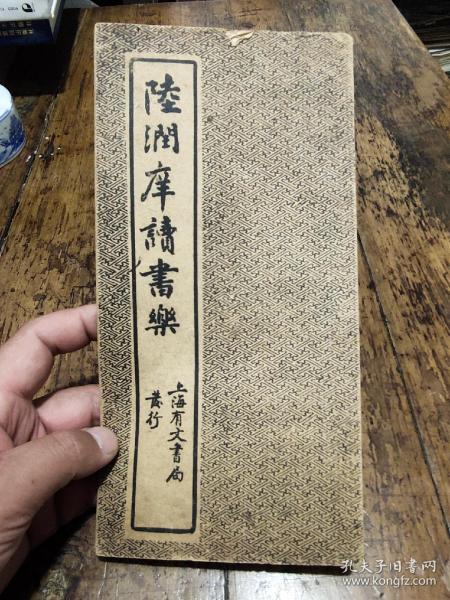 陸潤庠讀書樂
上海有文書局
發行
孔夫子旧书网
www.kongfz.com